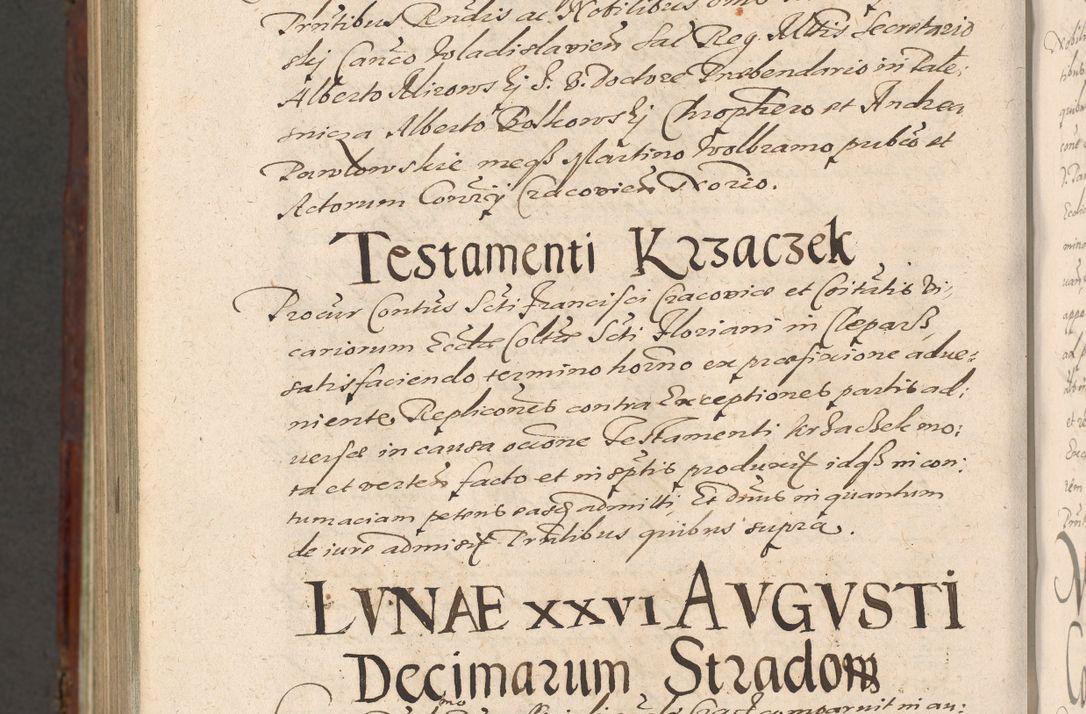 Prntibus Rndis ac Nobilibus
skij Canco Wladislavien Sac Reg Mttis Secretario
Alberto Mirowskÿ J. V. Doctore Prebendario in Pale:
mieza Alberto Bolkowskÿ Chrophero et Andrea
Pawłowskie meqß Martino Wolbramo pubco et
Actorum Conrÿ Cracovien Norio.
Testamenti Krzaczek
Procur Contus Scti Francisci Cracoviæ et Coitatis Vi:
cariorum Ecclæ Coltæ Scti Floriani in Clepars,
satisfaciendo termino horno ex præfixione adve:
niente Replicones contra Exceptiones partis ad:
versæ in causa occone Testamenti Krzaczek mo:
ta et verten facto et in sptis produxit idqß in con:
tumaciam petens easq admitti, Et Dnus in quantum
de iure admisit Prntibus quibus supra.
LVNAE XXVI AVGVSTI
Decimarum Stradom
comparuit in au: